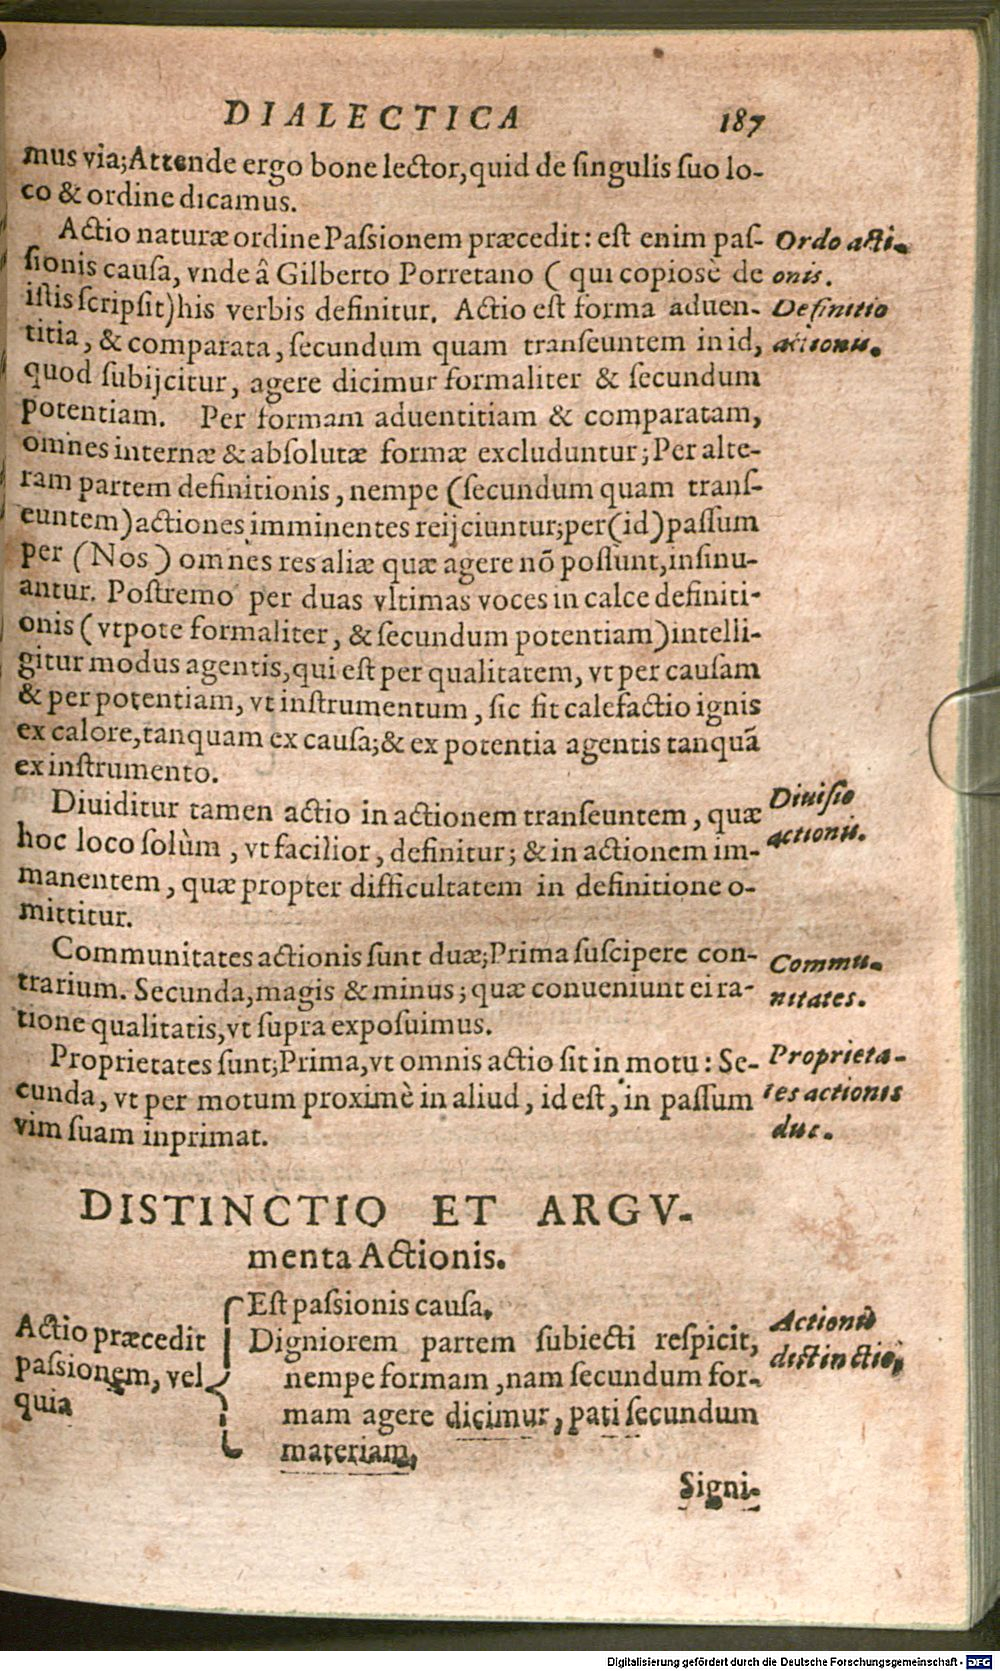 DIALECTICA 187
mus via;Attende ergo bone lector,quid de singulis suo lo-
co & ordine dicamus.
Actio naturæ ordine Passionem præcedit: est enim pas-
sionis causa, vnde â Gilberto Porretano ( qui copiosè de
istis scripsit)his verbis definitur. Actio est forma aduen-
titia, & comparata, secundum quam transeuntem in id,
quod subijcitur, agere dicimur formaliter & secundum
potentiam. Per formam aduentitiam & comparatam,
omnes internæ & absolutæ formæ excluduntur; Per alte-
ram partem definitionis, nempe (secundum quam trans-
euntem)actiones imminentes reijciuntur;per(id)passum
per (Nos) omnes res aliæ quæ agere nõ possunt,insinu-
antur. Postremo per duas vltimas voces in calce definiti-
onis (vtpote formaliter, & secundum potentiam)intelli-
gitur modus agentis,qui est per qualitatem, vt per causam
& per potentiam, vt instrumentum, sic fit calefactio ignis
ex calore,tanquam ex causa;& ex potentia agentis tanquã
ex instrumento.
Diuiditur tamen actio in actionem transeuntem, quæ
hoc loco solùm, vt facilior, definitur; & in actionem im-
manentem, quæ propter difficultatem in definitione o-
mittitur.
Communitates actionis sunt duæ;Prima suscipere con-
trarium. Secunda,magis & minus; quæ conueniunt ei ra-
tione qualitatis,vt supra exposuimus.
Proprietates sunt;Prima,vt omnis actio sit in motu: Se-
cunda, vt per motum proximè in aliud, id est, in passum
vim suam inprimat.
Ordo acti-
onis.
Definitio
actionis.
Diuisio
actionis.
Commu-
nitates.
Proprieta-
tes actionis
duæ.
DISTINCTIO ET ARGV-
menta Actionis.
Actio præcedit
passionem, vel
quia
Est passionis causa.
Digniorem partem subiecti respicit,
nempe formam, nam secundum for-
mam agere dicimur, pati secundum
materiam,
Actionis
distinctio,
Signi-
Digitalisierung gefördert durch die Deutsche Forschungsgemeinschaft - DFG